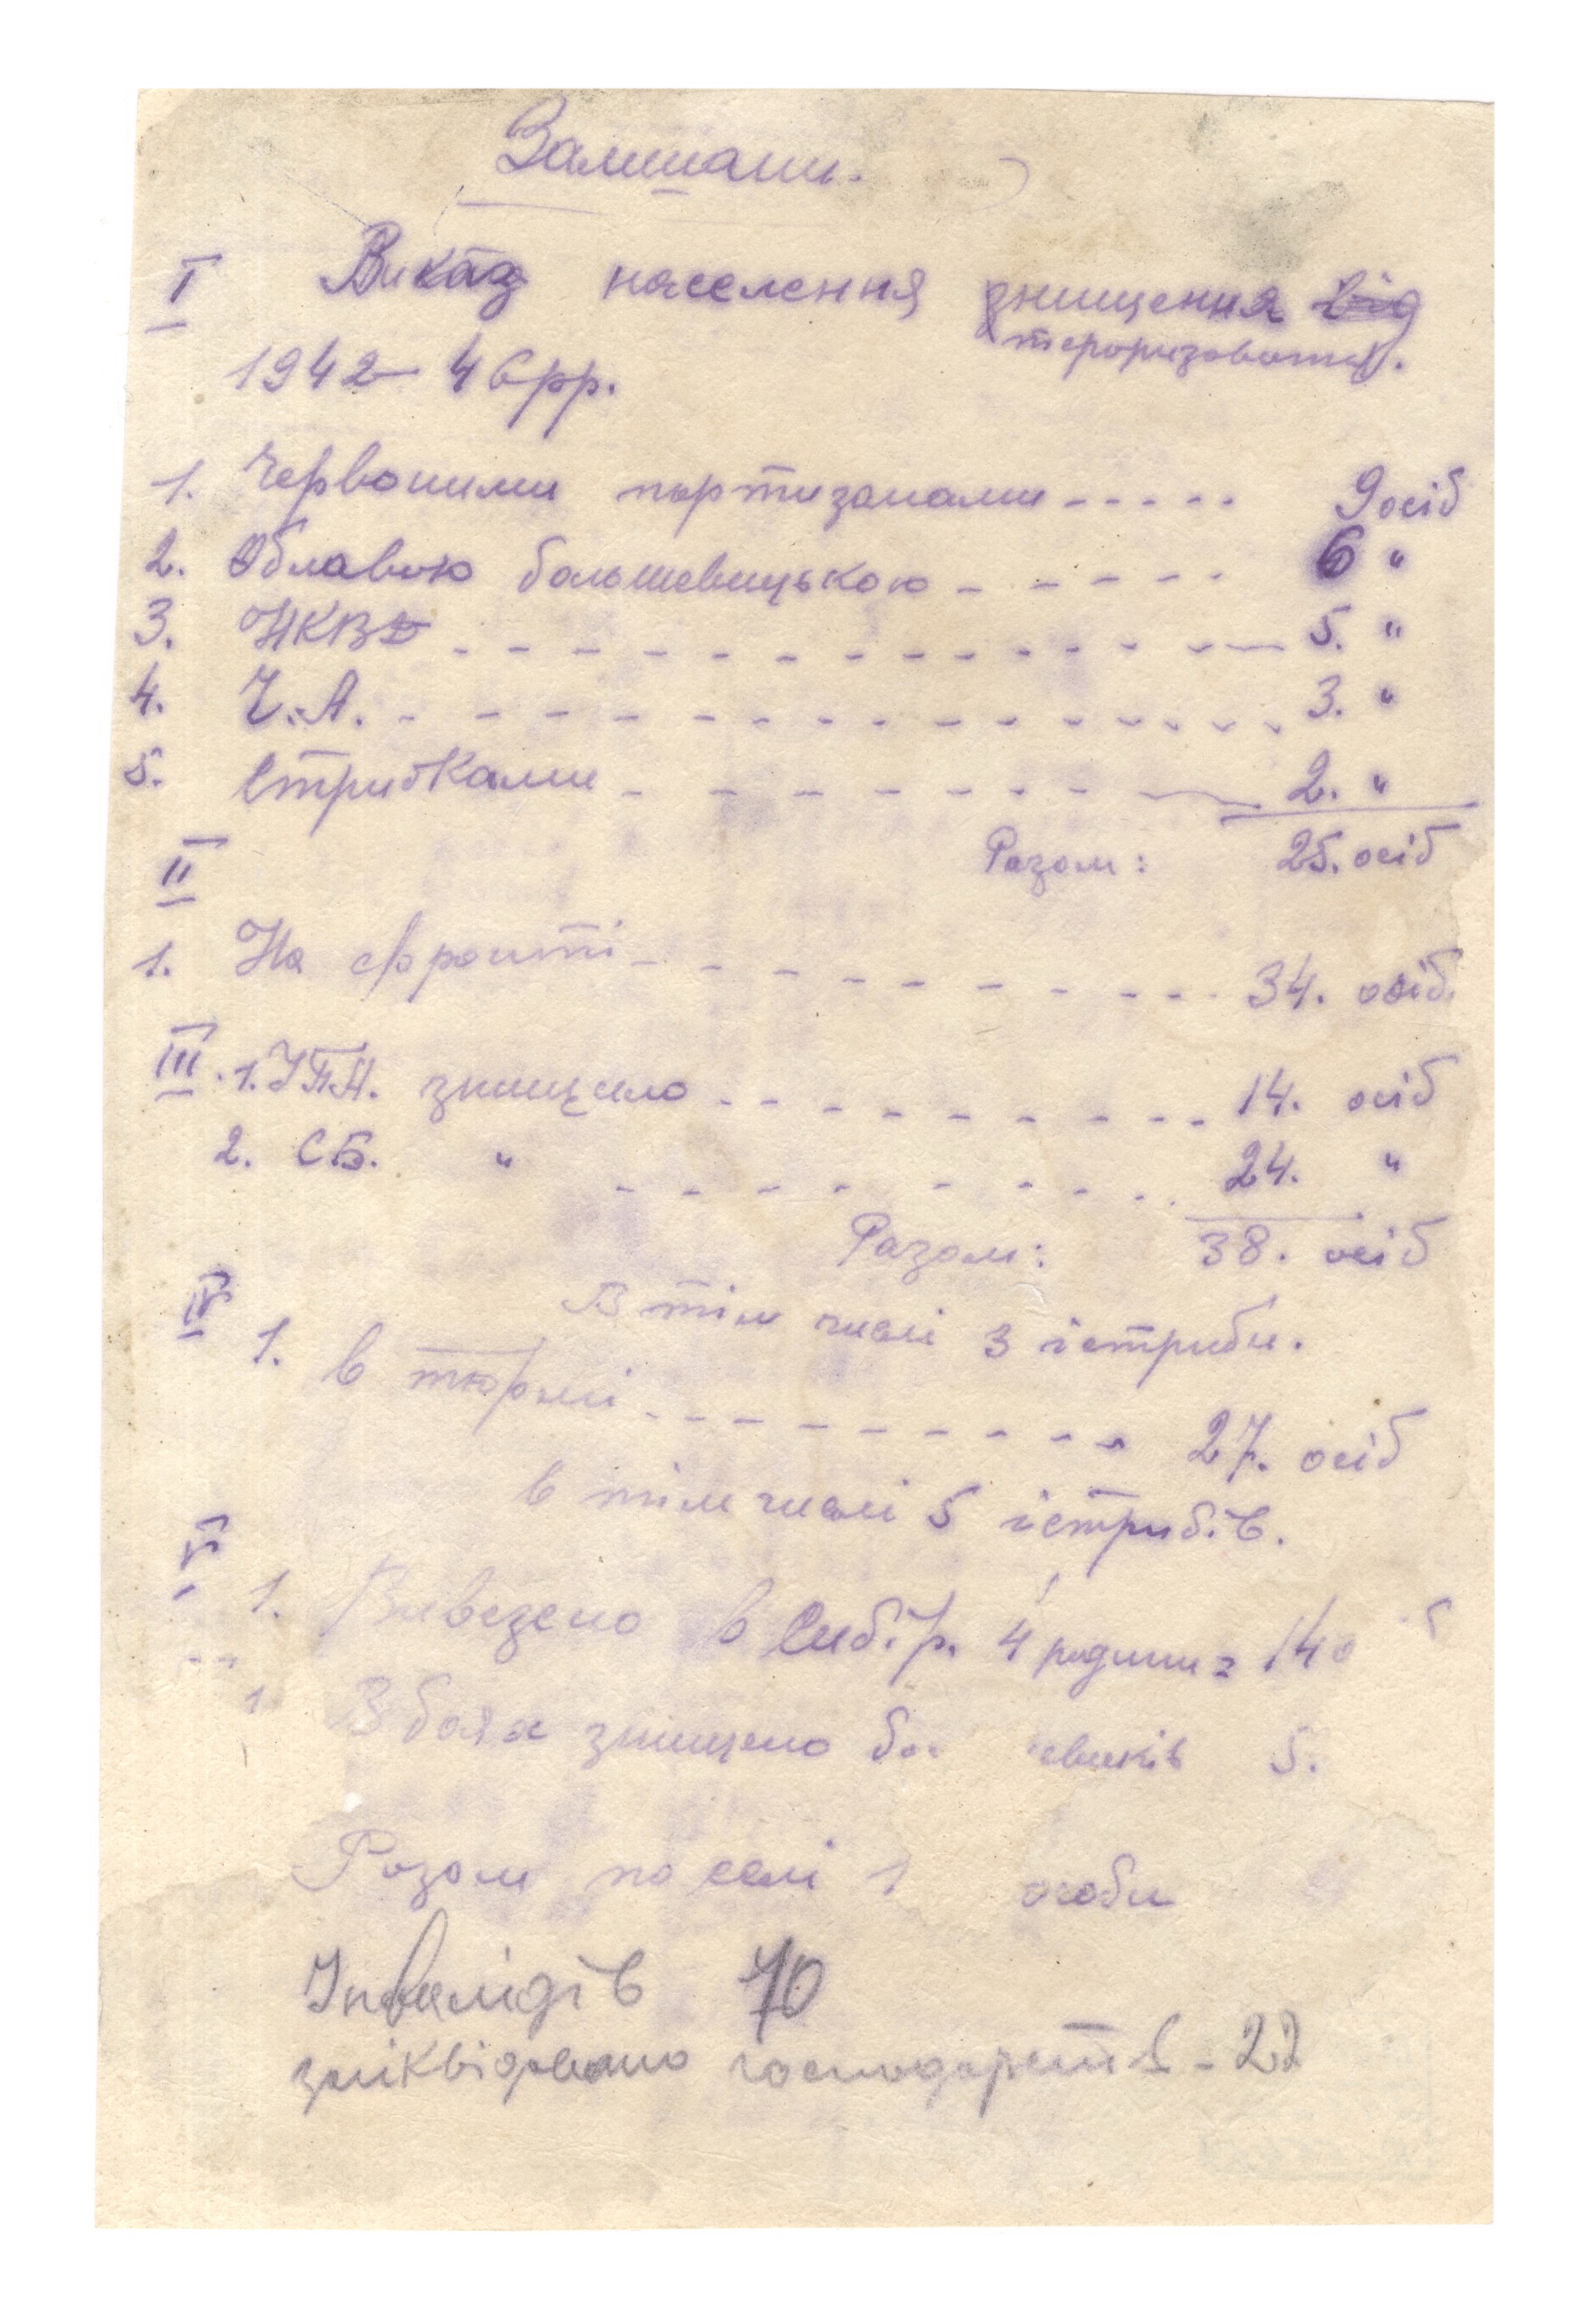 I Виказ населення знищення
тероризовання.
1942-46рр.
1. Червоними партизанами ----- 9 осіб
2. Облавою большевицькою ----- 6 "
3. НКВД ----- 5. "
4. Ч.А. ----- 3. "
5. Стрибками ----- 2. "
Разом: 25. осіб
II
1. На фронті ----- 34. осіб.
III. 1. УПА. знищило ----- 14. осіб
2. СБ. " ----- 24. "
Разом: 38. осіб
В тім числі 3 істриби.
IV
1. в тюрмі ----- 27. осіб
в тім числі 5 істрибів.
V
1. Вивезено в Сибір. 4 родини = 14 о б
1 З боях знищено бо евиків 5.
Разом по селі 1 особи
Інвалідів 10
зліквідовано господарств - 22